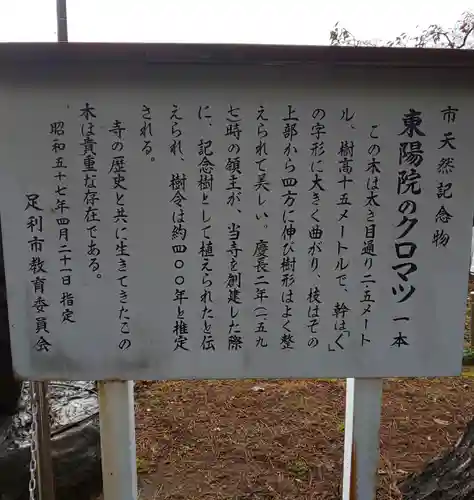 市天然記念物
東陽院のクロマツ 一本
この木は太さ目通り二・五メート
ル、樹高十五メートルで、幹は「く」
の字形に大きく曲がり、枝はその
上部から四方に伸び樹形はよく整
えられて美しい。慶長二年(一五九
七)時の領主が、当寺を創建した際
に、記念樹として植えられたと伝
えられ、樹令は約四〇〇年と推定
される。
寺の歴史と共に生きてきたこの
木は貴重な存在である。
昭和五十七年四月二十一日 指定
足利市教育委員会